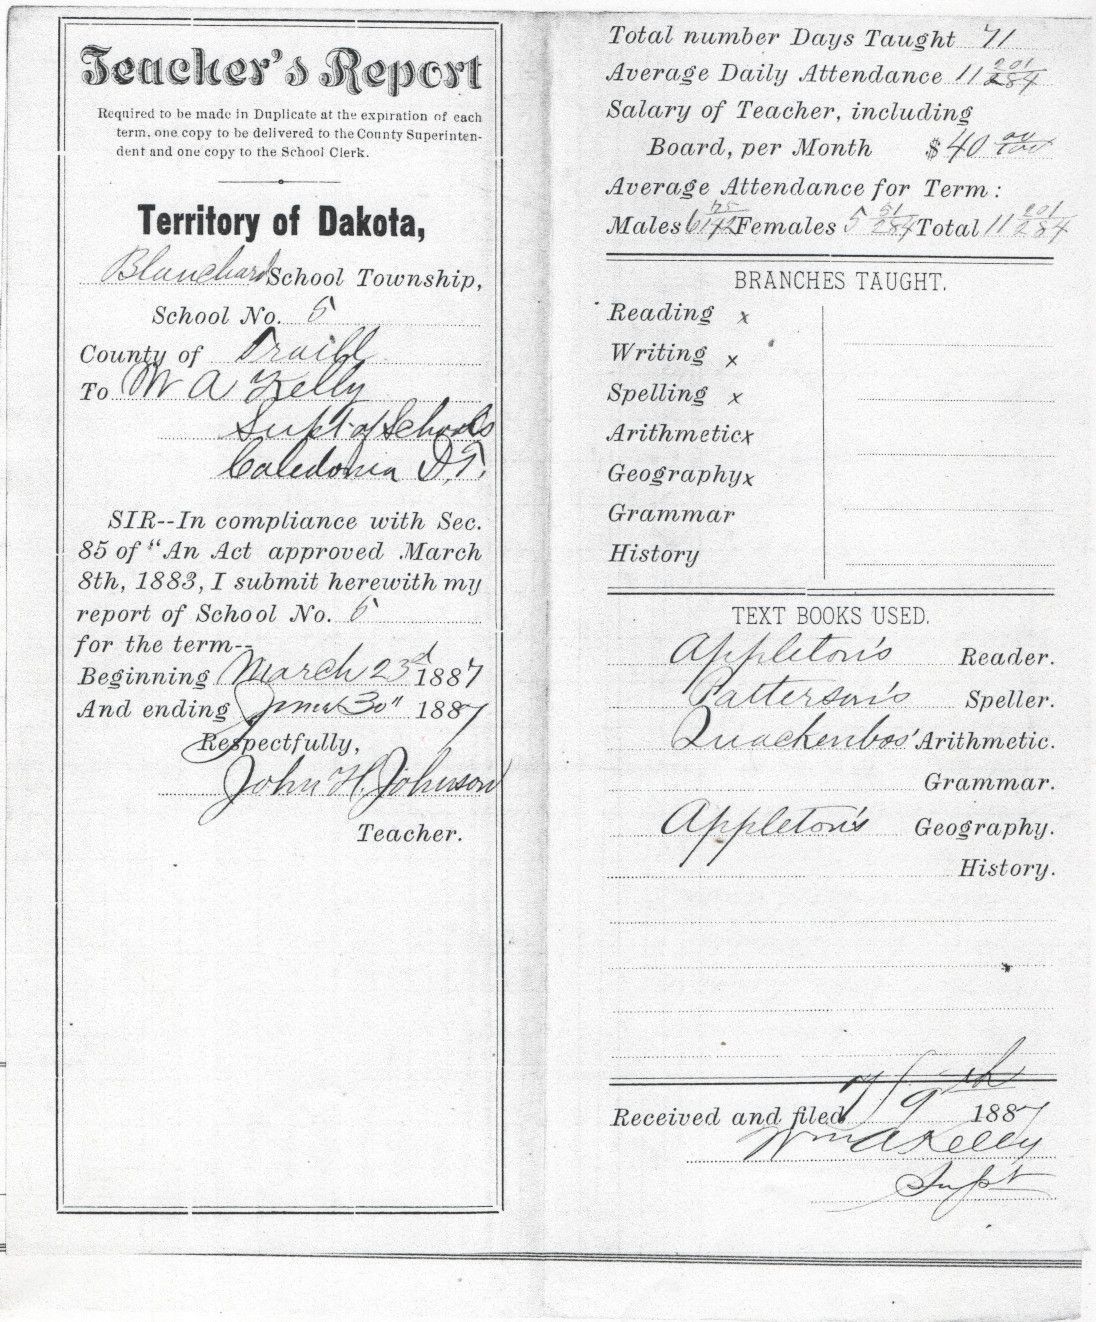 Teacher's Report
Required to be made in Duplicate at the expiration of each
term, one copy to be delivered to the County Superinten-
dent and one copy to the School Clerk.
Territory of Dakota,
Blanchard School Township,
School No. 5
County of Traill
To W A Kelly
Supt of Schools
Caledonia D.T.
SIR--In compliance with Sec.
85 of "An Act approved March
8th, 1883, I submit herewith my
report of School No. 5
for the term--
Beginning March 23d 1887
And ending June 30" 1887
Respectfully,
John H. Johnson
Teacher.
Total number Days Taught 71
Average Daily Attendance 11 201/284
Salary of Teacher, including
Board, per Month $40 00/100
Average Attendance for Term:
Males 6 75/142 Females 5 51/284 Total 11 201/284
BRANCHES TAUGHT.
Reading x
Writing x
Spelling x
Arithmetic x
Geography x
Grammar
History
TEXT BOOKS USED.
Appleton's Reader.
Patterson's Speller.
Quackenbos' Arithmetic.
Grammar.
Appleton's Geography.
History.
Received and filed 7/9th 1887
Wm A Kelly
Supt